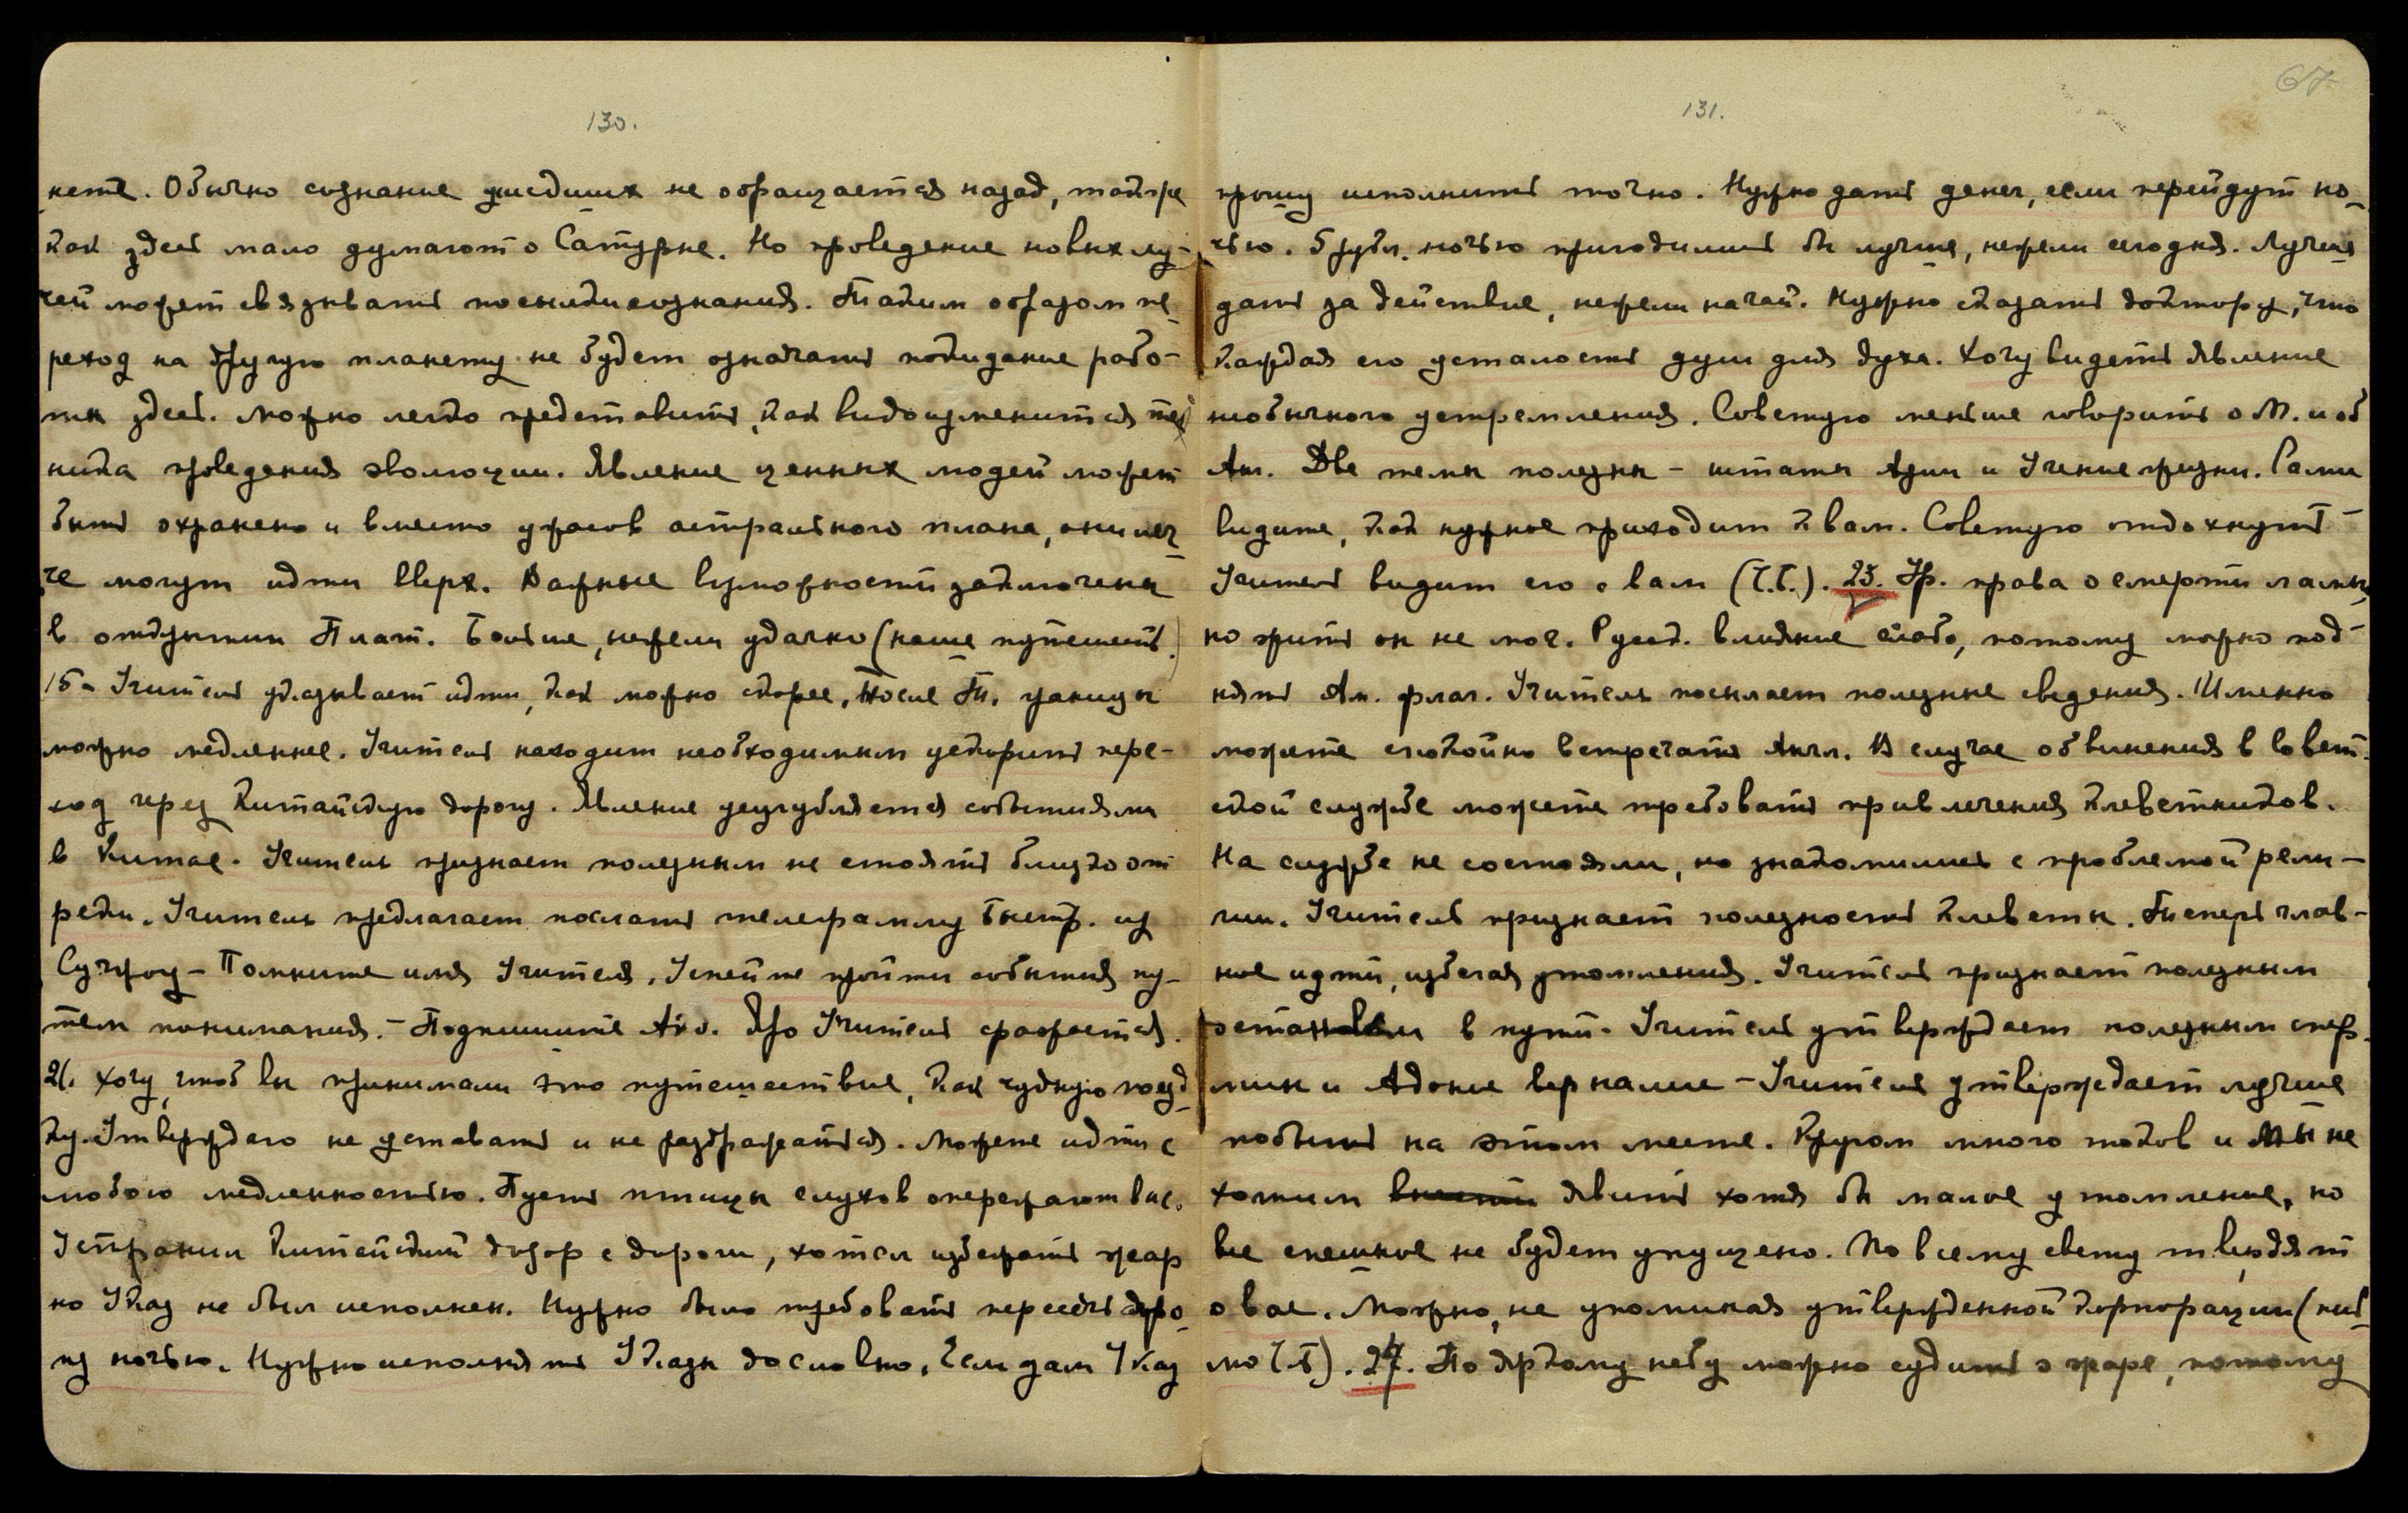 130.
нете. Обычно сознание ушедших не обращается назад, также
как здесь мало думают о Сатурне. Но проведение новых лу-
чей может связывать посылки сознания. Таким образом пе-
реход на другую планету не будет означать покидание рабо-
ты здесь. Можно легко представить, как видоизменится тех
ника проведения эволюции. Явление ценных людей может
быть охранено и вместо ужасов астрального плана, они лег-
че могут идти вверх. Важные возможности заключены
в отдутии Плат. Больше, нежели удачно (наше путешест.)
15- Учитель указывает идти, как можно скорее, после Т.
можно медленнее. Учитель находит необходимым ускорить пере-
ход через Китайскую дорогу. Явление усугубляется событиями
в Китае. Учитель признает полезным не стоять близко от
реки. Учитель предлагает послать телеграмму из
Сучжоу - Помните имя Учителя, Успейте пройти события пу-
тем понимания. - Подпишите Ак. Учитель сражается.
21. Хочу, чтоб вы принимали это путешествие, как чудную поезд-
ку. Утверждаю не уставать и не раздражаться. Можете идти с
любою медленностью. Пусть птицы слухов опережают вас.
Устранил Китайский дозор с дороги, хотел избежать жар
но Указ не был исполнен. Нужно было требовать пересечь доро-
гу ночью. Нужно исполнять Указы дословно. Если дам Указ
67
131.
прошу исполнить точно. Нужно дать денег, если перейдут но-
чью. 5 рубл. ночью пригодились бы лучше, нежели сегодня. Лучше
дать за действие, нежели на чай. Нужно сказать доктору, что
каждая его усталость душ для духа. Хочу видеть явление
необычного устремления. Советую меньше говорить о М. и об
Ак. Две темы полезны - штаты Азии и Учение жизни. Сами
видите, как нужное приходит к вам. Советую отдохнуть -
Учитель видит его с вам (Т.Т.). 23. Ур. права о смерти ламы,
но жить он не мог. Русск. влияние слабо, потому можно под-
нять Ам. флаг. Учитель посылает полезные сведения. Именно
можете спокойно встречать Англ. В случае обвинения в совет-
ской службе можете требовать привлечения клеветников.
На службе не состояли, но знакомились с проблемой рели-
гии. Учитель признает полезность клеветы. Теперь глав-
ное идти, избегая утомления. Учитель признает полезным
остановки в пути. Учитель утверждает полезным спер-
мин и Адонис верналис - Учитель утверждает лучше
побыть на этом месте. Кругом много токов и Мы не
хотим явить хотя бы малое утомление, но
все спешное не будет упущено. По всему свету твердят
о вас. Можно, не упоминая утвержденной корпорации (пись-
мо Т.Т). 24. По яркому небу можно судить о жаре, потому